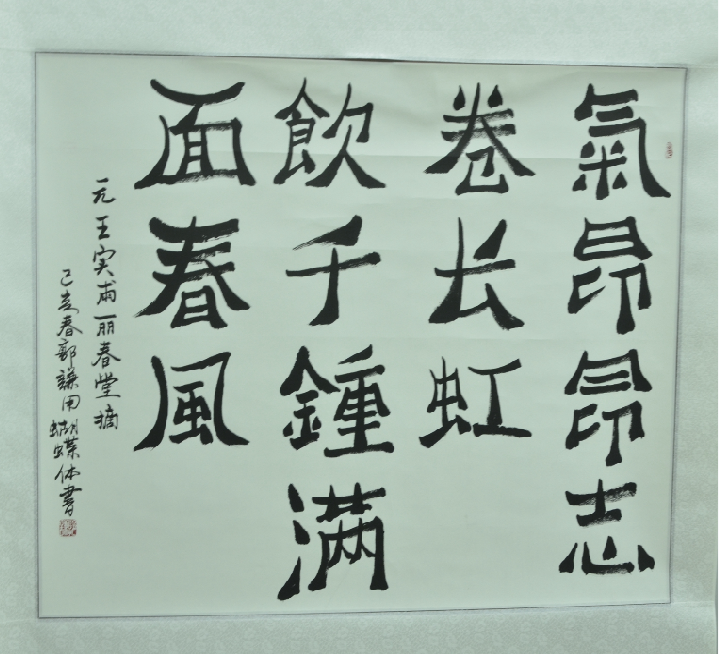 氣昂昂志
卷长虹
飲千鍾满
面春风
元王实甫丽春堂摘
己亥春郭謙用蝴蝶体書